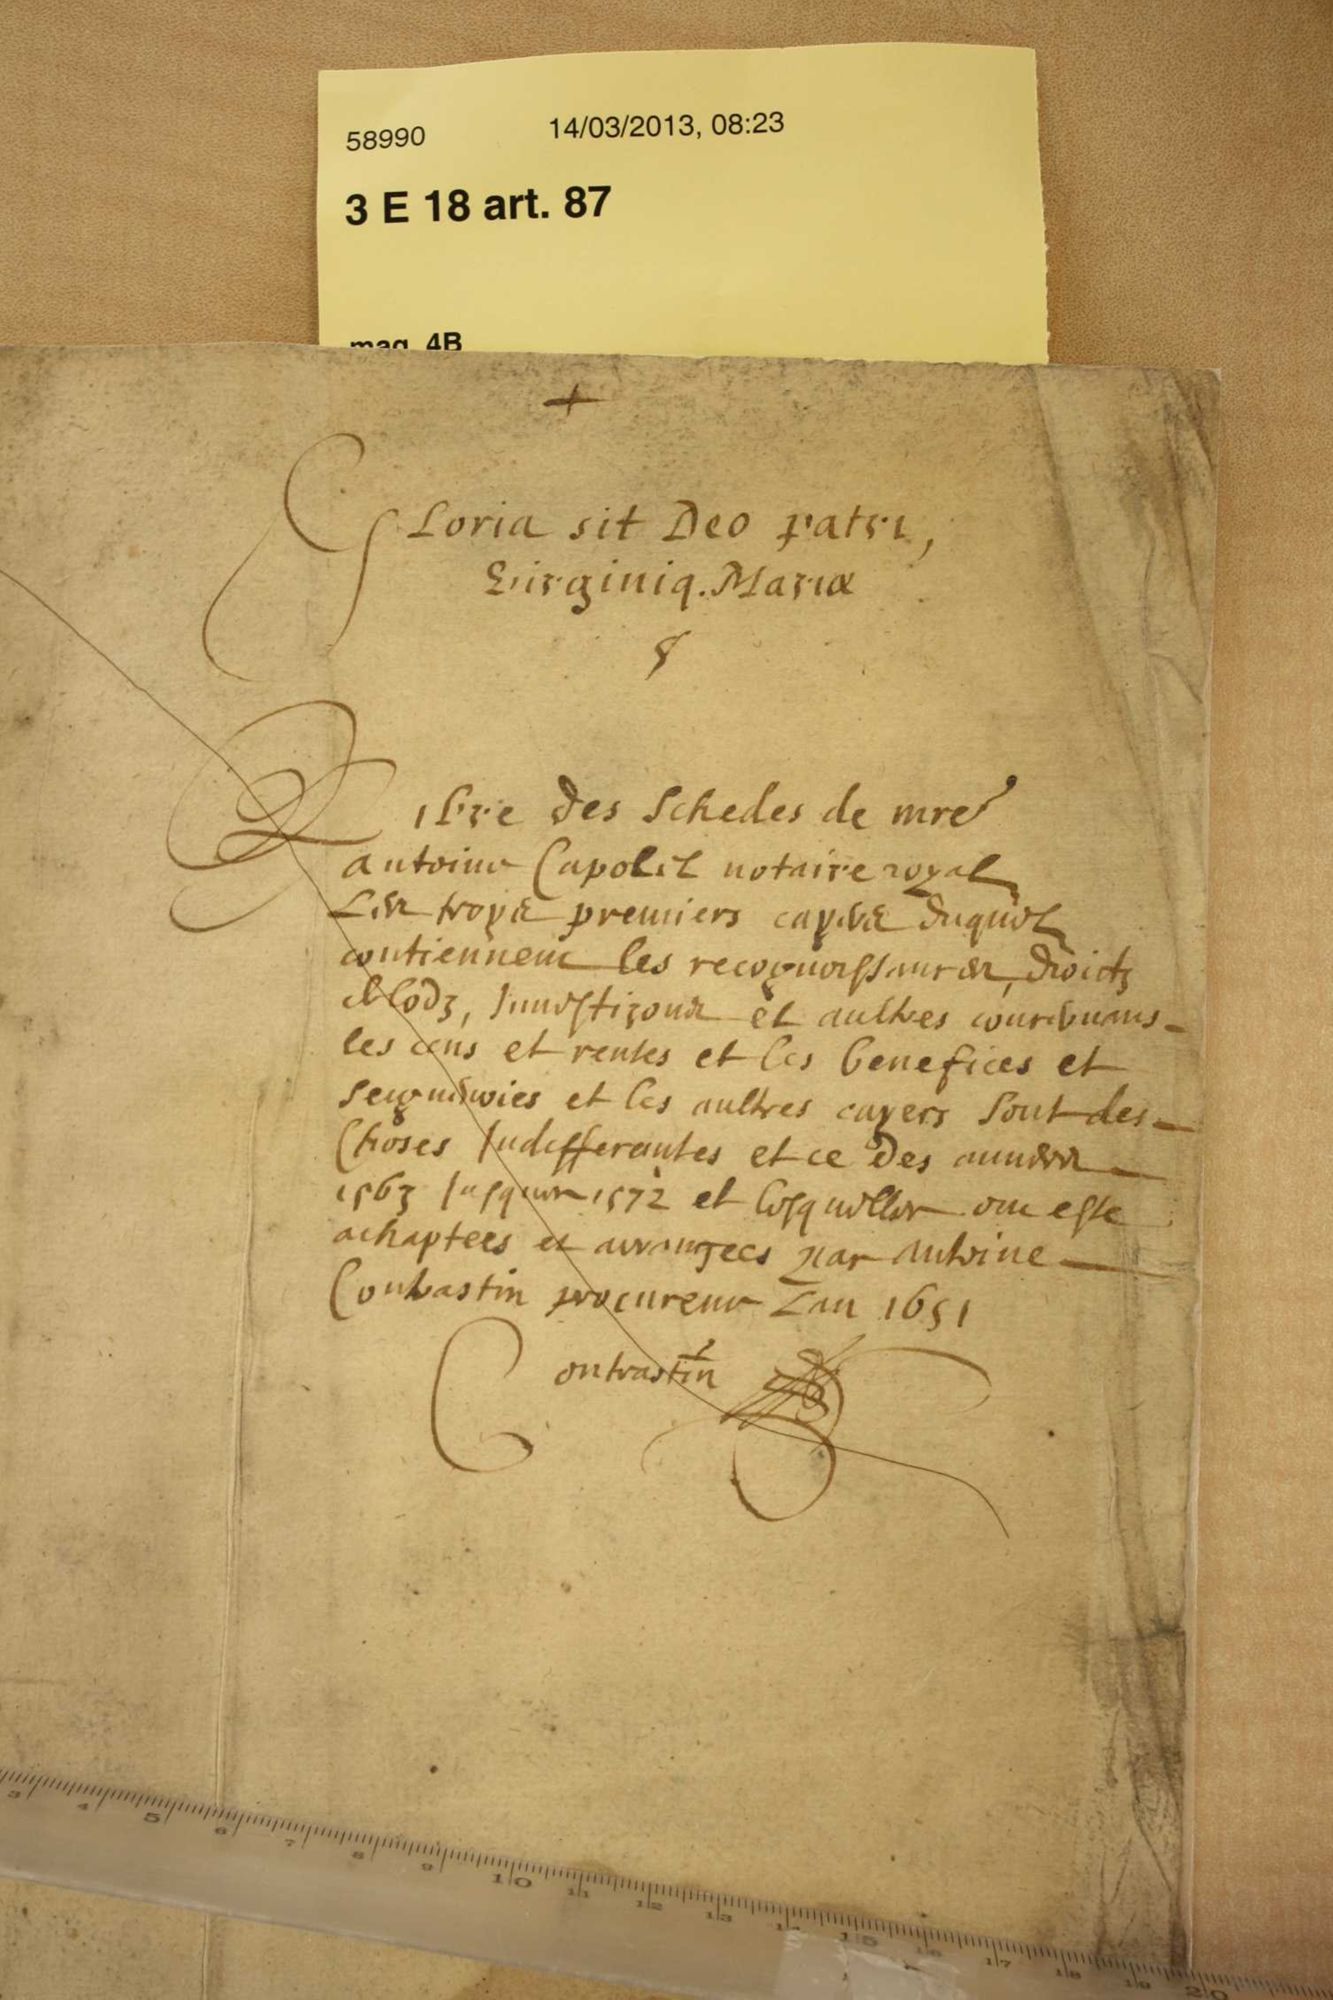 58990 14/03/2013, 08:23
3 E 18 art. 87
mag 4B
+
Gloria sit Deo patri,
Virginiq. Mariæ
Libre des Schedes de mre
antoine Capolil notaire royal
Les troys premiers cayers duquel
contiennent les recognoissances, droictz
de lodz, Investizons et aultres concernans
les cens et rentes et les benefices et
seigneuries et les aultres cayers sont des
choses Indifferantes et ce des annees
1563 Jusques 1572 et lesquelles ont este
achaptees et arrangees par Antoine
Contrastin procureur Lan 1651
Contrastin
3 4 5 6 7 8 9 10 11 12 13 14 15 16 17 18 19 20